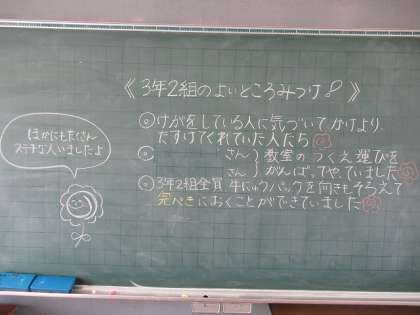 《3年2組のよいところみつけ♪》
◎けがをしている人に気づいてかけより、
たすけてくれていた人たち
◎ さん 教室のつくえ運びを
さん がんばってやっていました
◎3年2組全員 牛にゅうパックを向きもそろえて
完ぺきにおくことができていました
ほかにもたくさん
ステキな人いましたよ